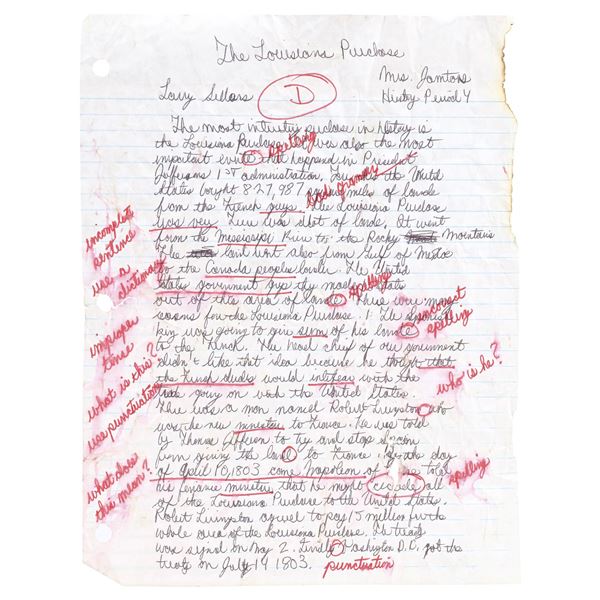 The Louisiana Puclase
Mrs. Jamtons
Larry Sellars
D
History Period 4
The most intrustry puclase in History is
the Louisiana Puclase was also the most
spelling
important evente that happened in President
bad grammar
Jeffersons 1ST administration, the United
States bought 827,987 miles of lande
from the French guys. The Louisiana Puclase
was very There was alot of lande. It went
incomplete
sentence
form the Mississippi River to the Rocky Montains
The land went also from Gulf of Mexico
use a
dictionary
to the Canada peoples border. The United
States government guys thy most states
spelling
out of this area of lande There were many
incorrect
spelling
resons for the Louisiana Puclase. 1. The Spanish
king was going to give sum of his lande
improper
tense
to the French. The head chief of our government
didn't like that idea because he thought that
what is this?
who is he?
the French dudes would intifear with the
use punctuation
going on with the United States.
There was a man named Robert Livingston who
was the new ministry to France. He was told
by Thomas Jefferson to try and stop Spain
from giving the land to France. the day
of April 10, 1803 came Napoleon of told
what does
this mean?
spelling
his finance ministur that he might all
of the Louisiana Puclase to the United States.
Robert Livingston agreed to pay 15 million for the
whole area of the Louisiana Puclase. The treaty
was signed on May 2. Washington D.C. got the
treaty on July 14 1803.
punctuation